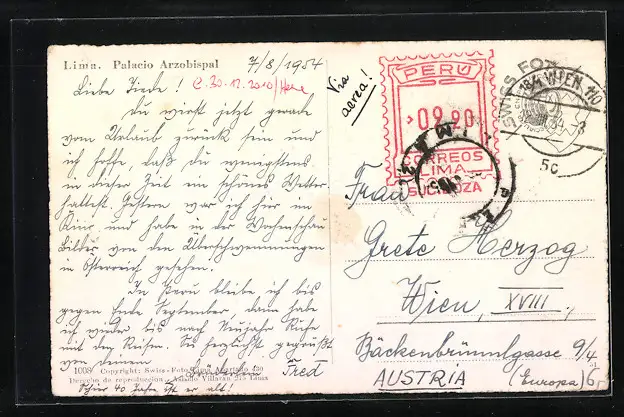 Lima. Palacio Arzobispal
7/8/1954
Liebe Tiede!
Du wirst jetzt gerade
vom Urlaub zurück sein und
ich hoffe, daß du wenigstens
in dieser Zeit ein schönes Wetter
hattest. Gestern war ich hier im
Kino und habe in der Wochenschau
Bilder von den Überschwemmungen
in Österreich gesehen.
In Peru bleibe ich bis
gegen Ende September, dann habe
ich wieder bis nach Neujahr Ruhe
mit den Reisen. Sei herzlichst gegrüßt
von deinem
Fred
1008 Copyright: Swiss-Foto Lima Apartado 450
Derecho de reproduccion
Lima
Via
aerea!
PERU
09.20
CORREOS
LIMA
SWISS FOTO
WIEN 110
5c
Frau
Grete Herzog
Wien, XVIII.,
Bäckenbrünnlgasse 9/4
AUSTRIA (Europa)